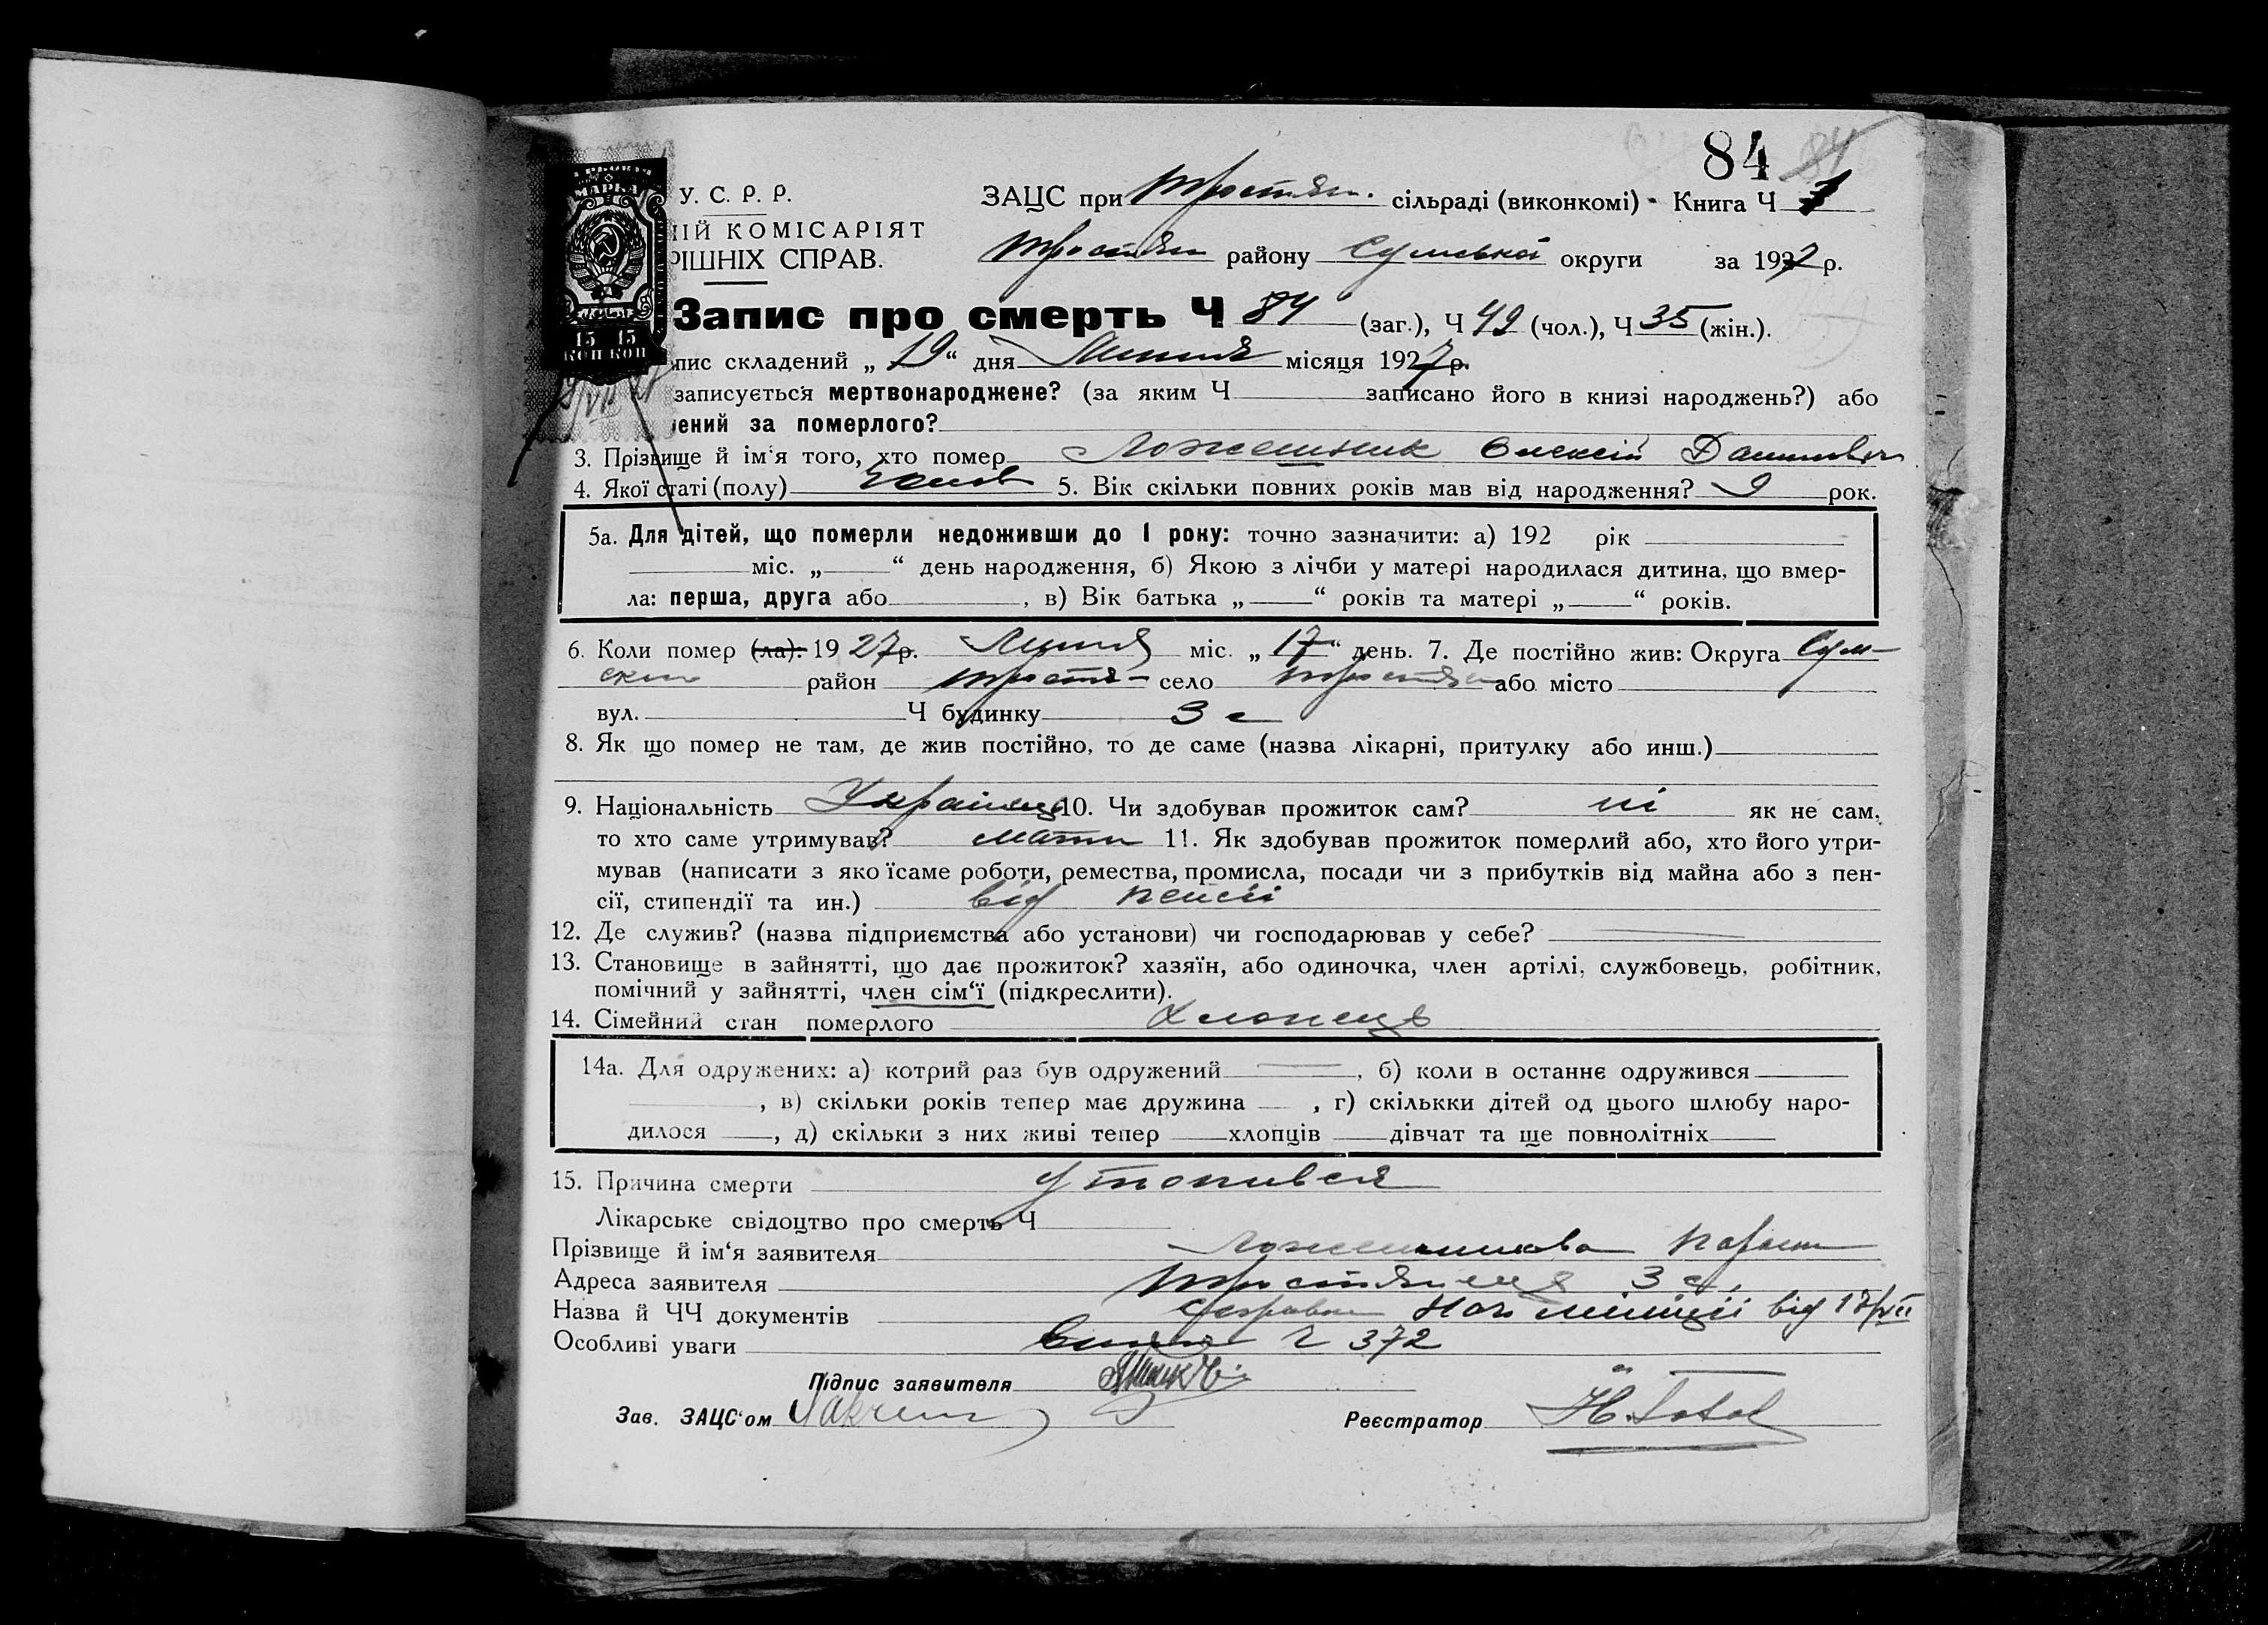 84
У. С. Р. Р.
ЗАЦС при Тростян. сільраді (виконкомі) Книга Ч 1
ІЙ КОМІСАРІЯТ
РІШНІХ СПРАВ.
Тростян району Сумської округи за 1927 р.
МАРКА
15 15
КОП КОП
Запис про смерть Ч 84 (заг.), Ч 49 (чол.), Ч 35 (жін.).
пис складений „ 19 “ дня Липня місяця 1927 р.
записується мертвонароджене? (за яким Ч записано його в книзі народжень?) або
ений за померлого?
3. Прізвище й ім'я того, хто помер Ложешник Олексій Данилович
4. Якої статі (полу) чолов 5. Вік скільки повних років мав від народження? 9 рок.
5а. Для дітей, що померли недоживши до 1 року: точно зазначити: а) 192 рік
міс. „ “ день народження, б) Якою з лічби у матері народилася дитина, що вмер-
ла: перша, друга або , в) Вік батька „ “ років та матері „ “ років.
6. Коли помер (ла): 1927 р. Липня міс. „ 17 “ день. 7. Де постійно жив: Округа Сум-
ск район Тростя- село Тростян або місто
вул. Ч будинку 3 с
8. Як що помер не там, де жив постійно, то де саме (назва лікарні, притулку або инш.)
9. Національність Українець 10. Чи здобував прожиток сам? ні як не сам,
то хто саме утримував? мати 11. Як здобував прожиток померлий або, хто його утри-
мував (написати з яко їсаме роботи, ремества, промисла, посади чи з прибутків від майна або з пен-
сії, стипендії та ин.) від пенсії
12. Де служив? (назва підприємства або установи) чи господарював у себе?
13. Становище в зайнятті, що дає прожиток? хазяїн, або одиночка, член артілі, службовець, робітник,
помічний у зайнятті, член сім'ї (підкреслити).
14. Сімейний стан померлого Хлопець
14а. Для одружених: а) котрий раз був одружений , б) коли в останнє одружився
, в) скільки років тепер має дружина , г) скількки дітей од цього шлюбу наро-
дилося , д) скільки з них живі тепер хлопців дівчат та ще повнолітніх
15. Причина смерти утопився
Лікарське свідоцтво про смерть Ч
Прізвище й ім'я заявителя Ложешникова
Адреса заявителя Тростянеця 3 с,
Назва й ЧЧ документів Нач міліції від 17/VII
Особливі уваги Ч 372
Підпис заявителя
Зав. ЗАЦС'ом
Реєстратор